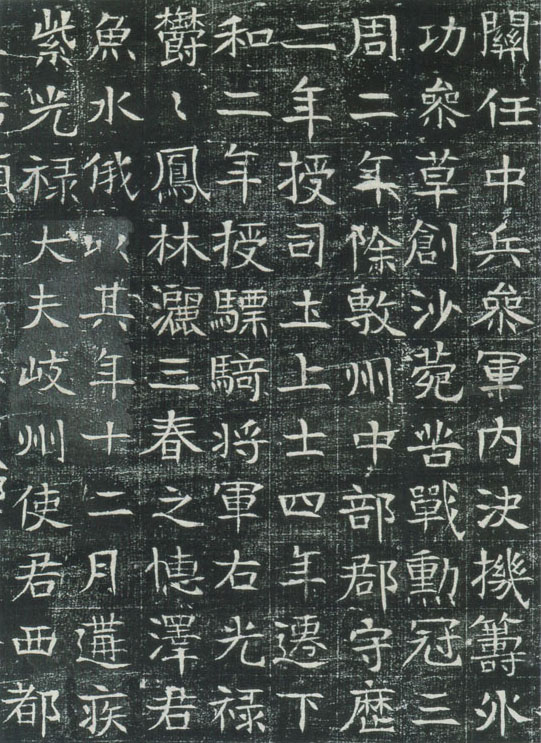 關任中兵叅軍內決機籌外
功叅草創沙菀苦戰勳冠三
周二年除敷州中部郡守歷
二年授司土上士四年遷下
和二年授驃騎将軍右光禄
欝〻鳳林灑三春之德澤君
魚水俄以其年十二月遘疾
紫光禄大夫岐州使君西都